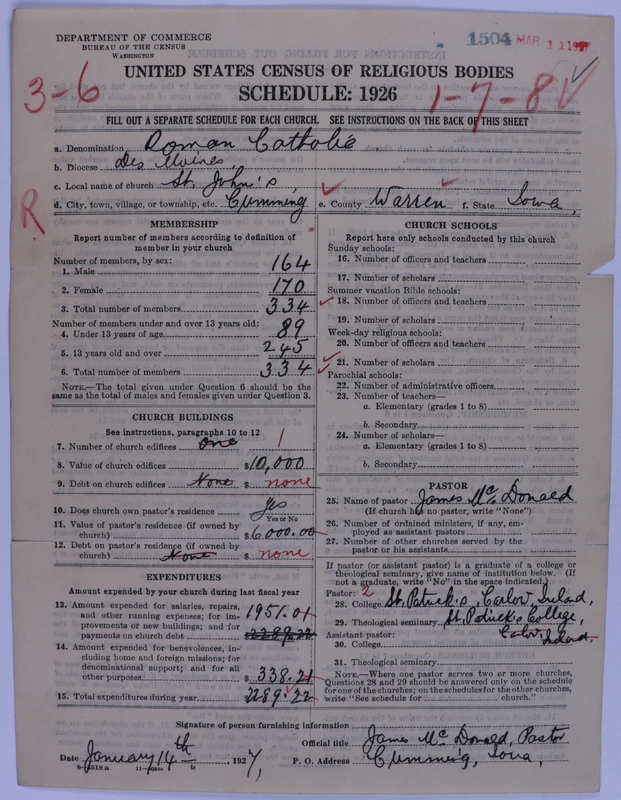 DEPARTMENT OF COMMERCE
BUREAU OF THE CENSUS
WASHINGTON
1504 MAR
UNITED STATES CENSUS OF RELIGIOUS BODIES
SCHEDULE: 1926
3-6
1-7-8
FILL OUT A SEPARATE SCHEDULE FOR EACH CHURCH. SEE INSTRUCTIONS ON THE BACK OF THIS SHEET
a. Denomination Roman Catholic
b. Diocese Des Moines,
c. Local name of church St. John's,
d. City, town, village, or township, etc. Cumming e. County Warren f. State Iowa,
R
MEMBERSHIP
Report number of members according to definition of
member in your church
Number of members, by sex:
1. Male 164
2. Female 170
3. Total number of members 334
Number of members under and over 13 years old:
4. Under 13 years of age 89
5. 13 years old and over 245
6. Total number of members 334
NOTE.—The total given under Question 6 should be the
same as the total of males and females given under Question 3.
CHURCH BUILDINGS
See instructions, paragraphs 10 to 12
7. Number of church edifices One 1
8. Value of church edifices $10,000
9. Debt on church edifices None $ none
10. Does church own pastor's residence Yes
Yes or No
11. Value of pastor's residence (if owned by
church) $6,000.00
12. Debt on pastor's residence (if owned by
church) None $ none
EXPENDITURES
Amount expended by your church during last fiscal year
13. Amount expended for salaries, repairs,
and other running expenses; for im-
provements or new buildings; and for
payments on church debt 1951.01
2289.22
14. Amount expended for benevolences, in-
cluding home and foreign missions; for
denominational support; and for all
other purposes $ 338.21
15. Total expenditures during year 2289.22
CHURCH SCHOOLS
Report here only schools conducted by this church
Sunday schools:
16. Number of officers and teachers
17. Number of scholars
Summer vacation Bible schools:
18. Number of officers and teachers
19. Number of scholars
Week-day religious schools:
20. Number of officers and teachers
21. Number of scholars
Parochial schools:
22. Number of administrative officers
23. Number of teachers—
a. Elementary (grades 1 to 8)
b. Secondary
24. Number of scholars—
a. Elementary (grades 1 to 8)
b. Secondary
PASTOR
25. Name of pastor James McDonald
(If church has no pastor, write "None")
26. Number of ordained ministers, if any, em-
ployed as assistant pastors
27. Number of other churches served by the
pastor or his assistants
If pastor (or assistant pastor) is a graduate of a college or
theological seminary, give name of institution below. (If
not a graduate, write "No" in the space indicated.)
Pastor: 2
28. College St. Patrick's, Carlow, Ireland,
29. Theological seminary St. Patrick's College,
Assistant pastor: Carlow, Ireland,
30. College
31. Theological seminary
NOTE.—Where one pastor serves two or more churches,
Questions 28 and 29 should be answered only on the schedule
for one of the churches; on the schedules for the other churches,
write "See schedule for church."
Signature of person furnishing information
Official title James McDonald, Pastor
Date January 14th, 1927, P. O. Address Cumming, Iowa,